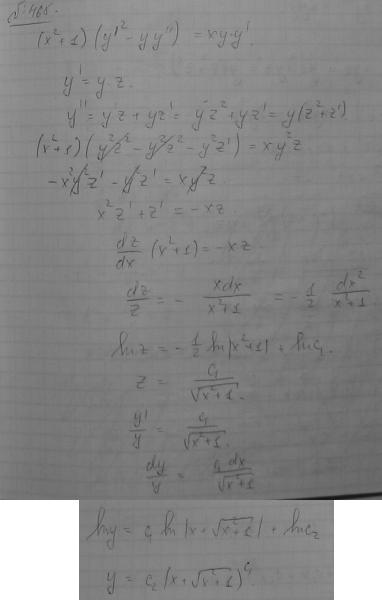 № 466.
(x²+1)(y'² - yy'') = xy·y'.
y' = y·z.
y'' = y'z + yz' = yz² + yz' = y(z²+z')
(x²+1)(y²z² - y²z² - y²z') = xy²z
-x²y²z' - y²z' = xy²z
x²z' + z' = -xz.
dz/dx (x²+1) = -xz.
dz/z = - xdx/(x²+1) = - 1/2 dx²/(x²+1).
ln z = - 1/2 ln|x²+1| + ln c₁.
z = c₁/√(x²+1).
y'/y = c₁/√(x²+1).
dy/y = c₁dx/√(x²+1)
ln y = c₁ ln|x + √(x²+1)| + ln c₂
y = c₂(x + √(x²+1))^c₁.